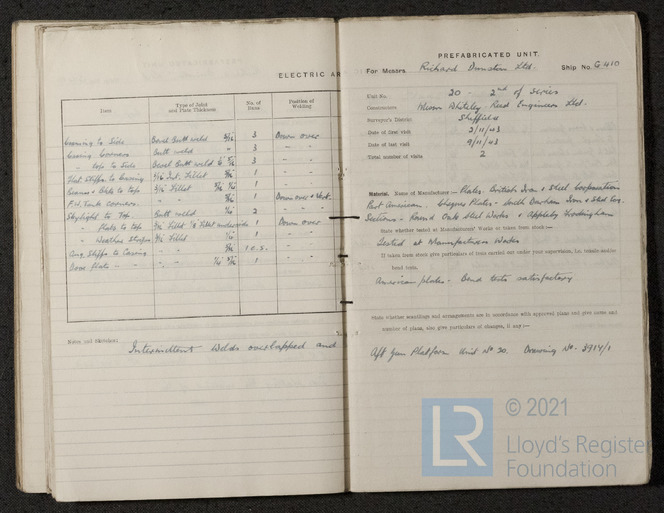 ELECTRIC AR
Item
Type of Joint and Plate Thickness
No. of Runs
Position of Welding
Coaming to Side Bevel Butt weld 3 Down over
Casing Corners Butt weld " 3 " "
" top to Side Bevel Butt weld 3 " "
Fillet 1 " "
Fillet 1 " "
F.W. Tank corners. " " 1 Down over & Vert.
Skylight to Top Butt weld 2 " "
" Flats to top Fillet 1 Down over
" Fillet 1 " "
to Casing " " " "
" " 1 " "
Notes and Sketches:
Intermittent Welds overlapped and
PREFABRICATED UNIT.
For Messrs. Richard Dunston Ltd. Ship No. G 410
Unit No. 20 - 2nd of series
Constructors Messrs Whiteley - Read Engineers Ltd.
Surveyor's District Sheffield
Date of first visit 2/11/43
Date of last visit 9/11/43
Total number of visits 2
Material. Name of Manufacturer :— Plates. British Iron & Steel Corporation
Part American. Wagner Plates - South Durham Iron & Steel Coy.
Sections - Round Oak Steel Works & Appleby Frodingham
State whether tested at Manufacturers' Works or taken from stock :—
Tested at Manufacturers Works
If taken from stock give particulars of tests carried out under your supervision, i.e. tensile and/or
bend tests.
American plates - Bend tests satisfactory
State whether scantlings and arrangements are in accordance with approved plans and give name and
number of plans, also give particulars of changes, if any :—
Aft Gun Platform Unit No 20. Drawing No - 3914/1
LR
© 2021
Lloyd's Register
Foundation